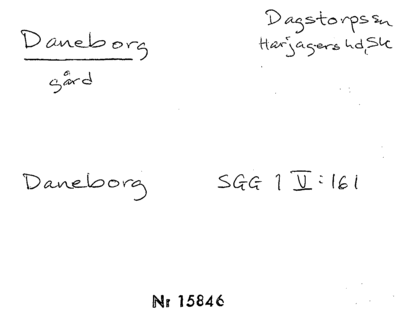 Daneborg
gård
Dagstorps sn
Harjagers hd, Sk
Daneborg SGG 1 V:161
Nr 15846